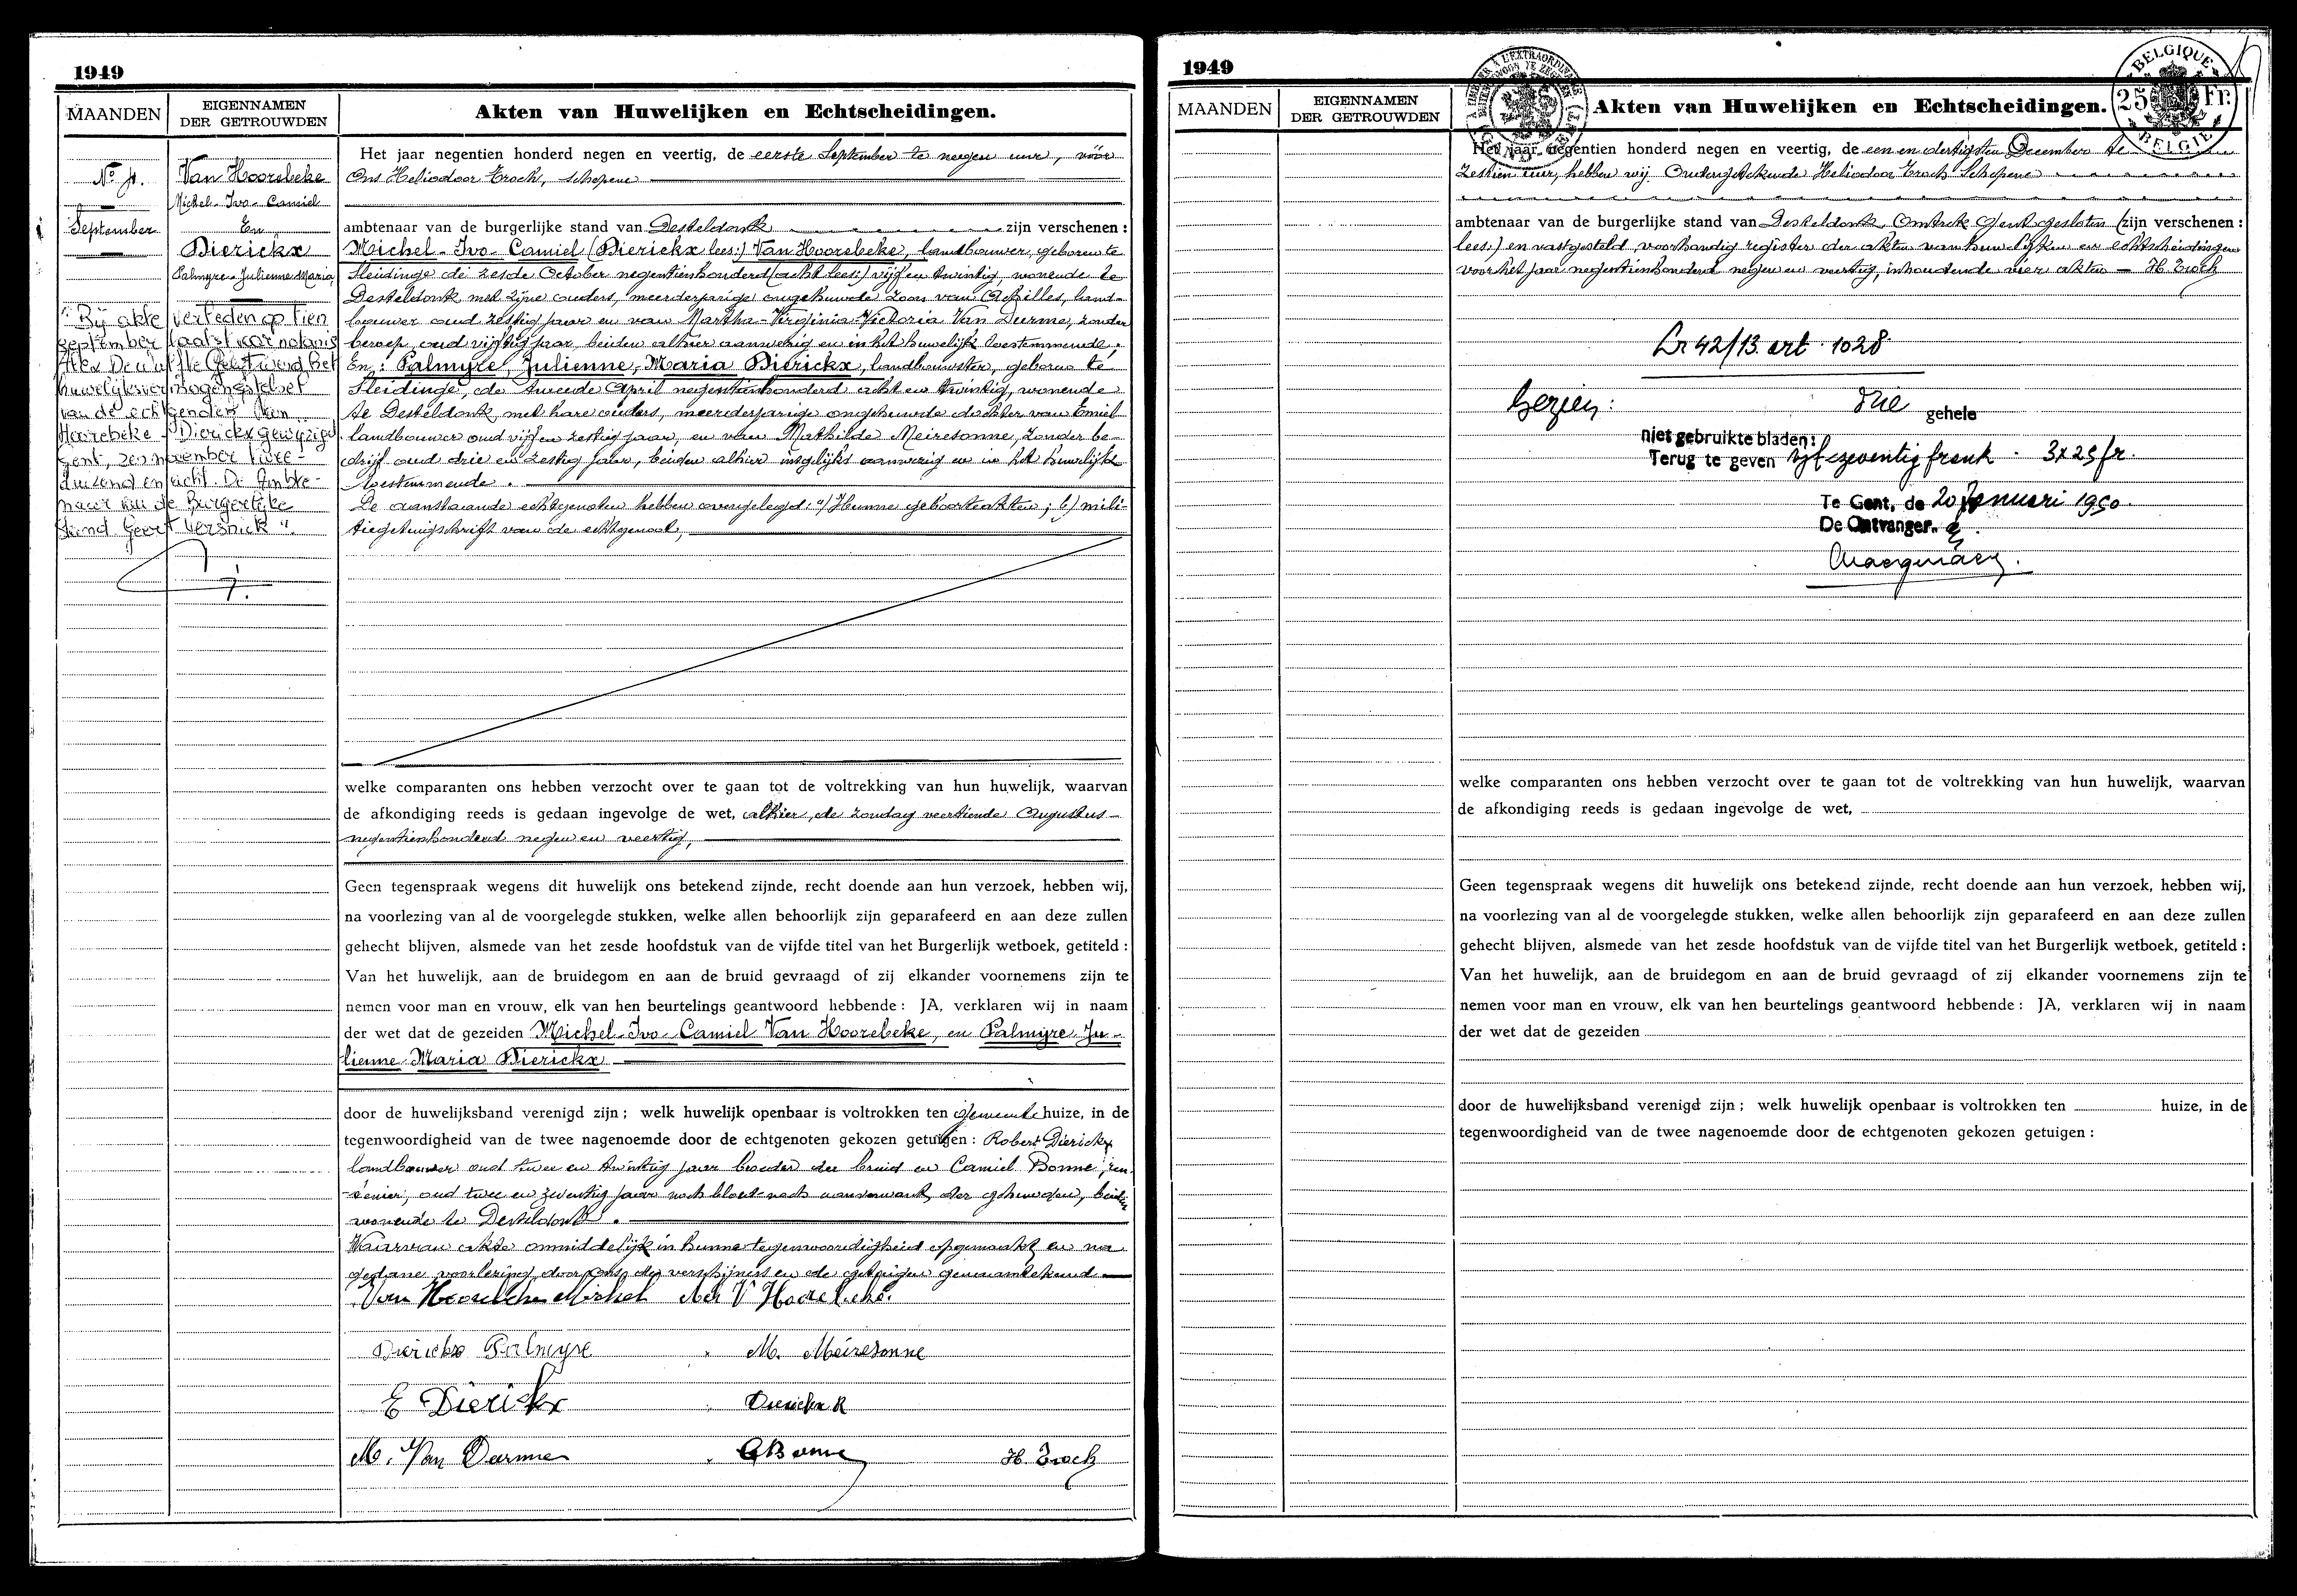 1949
MAANDEN
EIGENNAMEN
DER GETROUWDEN
Akten van Huwelijken en Echtscheidingen.
N° 4.
September
Van Hoorebeke
Michel-Ivo-Camiel
En
Dierickx
Palmyre-Julienne-Maria,
"Bij akte verleden op tien
september laatst voor notaris
Alex De Wulf te Gent werd het
huwelijksvermogensstelsel
van de echtgenoten Van
Hoorebeke - Dierickx gewijzigd
Gent, 20 november twee-
duizend en acht. De Ambte-
naar van de Burgerlijke
Stand Geert Versnick".
Het jaar negentien honderd negen en veertig, de eerste September te negen uur, vóór
Ons Heliodoor Trock, schepene
ambtenaar van de burgerlijke stand van Desteldonk zijn verschenen :
Michel-Ivo-Camiel (Dierickx lees:) Van Hoorebeke, landbouwer, geboren te
Sleidinge de zesde October negentienhonderd (acht lees:) vijf en twintig, wonende te
Desteldonk met zijne ouders, meerderjarige ongehuwde zoon van Achilles, land-
bouwer oud zestig jaar en van Martha-Virginia-Victoria Van Durme, zonder
beroep, oud vijftig jaar, beiden alhier aanwezig en in het huwelijk toestemmende;
En: Palmyre, Julienne, Maria Dierickx, landbouwster, geboren te
Sleidinge, de tweede April negentienhonderd acht en twintig, wonende
te Desteldonk, met hare ouders, meerderjarige ongehuwde dochter van Emiel
landbouwer oud vijf en zestig jaar, en van Mathilde Meiresonne, zonder be-
drijf oud drie en zestig jaar, beiden alhier insgelijks aanwezig en in het huwelijk
toestemmende.
De aanstaande echtgenoten hebben overgelegd: a) Hunne geboorteakten; b) mili-
tiegetuigschrift van de echtgenoot,
welke comparanten ons hebben verzocht over te gaan tot de voltrekking van hun huwelijk, waarvan
de afkondiging reeds is gedaan ingevolge de wet, alhier, de zondag veertiende Augustus
negentienhonderd negen en veertig,
Geen tegenspraak wegens dit huwelijk ons betekend zijnde, recht doende aan hun verzoek, hebben wij,
na voorlezing van al de voorgelegde stukken, welke allen behoorlijk zijn geparafeerd en aan deze zullen
gehecht blijven, alsmede van het zesde hoofdstuk van de vijfde titel van het Burgerlijk wetboek, getiteld :
Van het huwelijk, aan de bruidegom en aan de bruid gevraagd of zij elkander voornemens zijn te
nemen voor man en vrouw, elk van hen beurtelings geantwoord hebbende : JA, verklaren wij in naam
der wet dat de gezeiden Michel-Ivo-Camiel Van Hoorebeke, en Palmyre Ju-
lienne Maria Dierickx
door de huwelijksband verenigd zijn ; welk huwelijk openbaar is voltrokken ten gemeente huize, in de
tegenwoordigheid van de twee nagenoemde door de echtgenoten gekozen getuigen : Robert Dierickx
landbouwer oud twee en twintig jaar broeder der bruid en Camiel Bonne, ren-
tenier, oud twee en zeventig jaar noch bloed- noch aanverwant der gehuwden, beiden
wonende te Desteldonk.
Waarvan akte onmiddelijk in hunne tegenwoordigheid opgemaakt en na
gedane voorlezing door ons, de verschijners en de getuigen genaamtekend
Van Hoorebeke Michel Ach V Hoorebeke.
Dierickx Palmyre M. Meiresonne
E Dierickx Dierickx R
M. Van Durme C Bonne H. Trock
1949
MAANDEN
EIGENNAMEN
DER GETROUWDEN
Akten van Huwelijken en Echtscheidingen.
GAND GENT
BELGIQUE
25 Fr.
BELGIË
Het jaar negentien honderd negen en veertig, de een en dertigsten December te
Zestien uur, hebben wij Ondergetekende Heliodoor Trock Schepene
ambtenaar van de burgerlijke stand van Desteldonk, Omtrek Gent gesloten (zijn verschenen :
lees:) en vastgesteld voorhandig register der akten van huwelijken en echtscheidingen
voor het jaar negentienhonderd negen en veertig, inhoudende vier akten — H. Trock
Lr 42/13 art. 1028
Gezien: drie gehele
niet gebruikte bladen:
Terug te geven vijf en zeventig frank - 3x25 fr.
Te Gent, de 20 Januari 1950.
De Ontvanger.
welke comparanten ons hebben verzocht over te gaan tot de voltrekking van hun huwelijk, waarvan
de afkondiging reeds is gedaan ingevolge de wet,
Geen tegenspraak wegens dit huwelijk ons betekend zijnde, recht doende aan hun verzoek, hebben wij,
na voorlezing van al de voorgelegde stukken, welke allen behoorlijk zijn geparafeerd en aan deze zullen
gehecht blijven, alsmede van het zesde hoofdstuk van de vijfde titel van het Burgerlijk wetboek, getiteld :
Van het huwelijk, aan de bruidegom en aan de bruid gevraagd of zij elkander voornemens zijn te
nemen voor man en vrouw, elk van hen beurtelings geantwoord hebbende : JA, verklaren wij in naam
der wet dat de gezeiden
door de huwelijksband verenigd zijn ; welk huwelijk openbaar is voltrokken ten huize, in de
tegenwoordigheid van de twee nagenoemde door de echtgenoten gekozen getuigen :